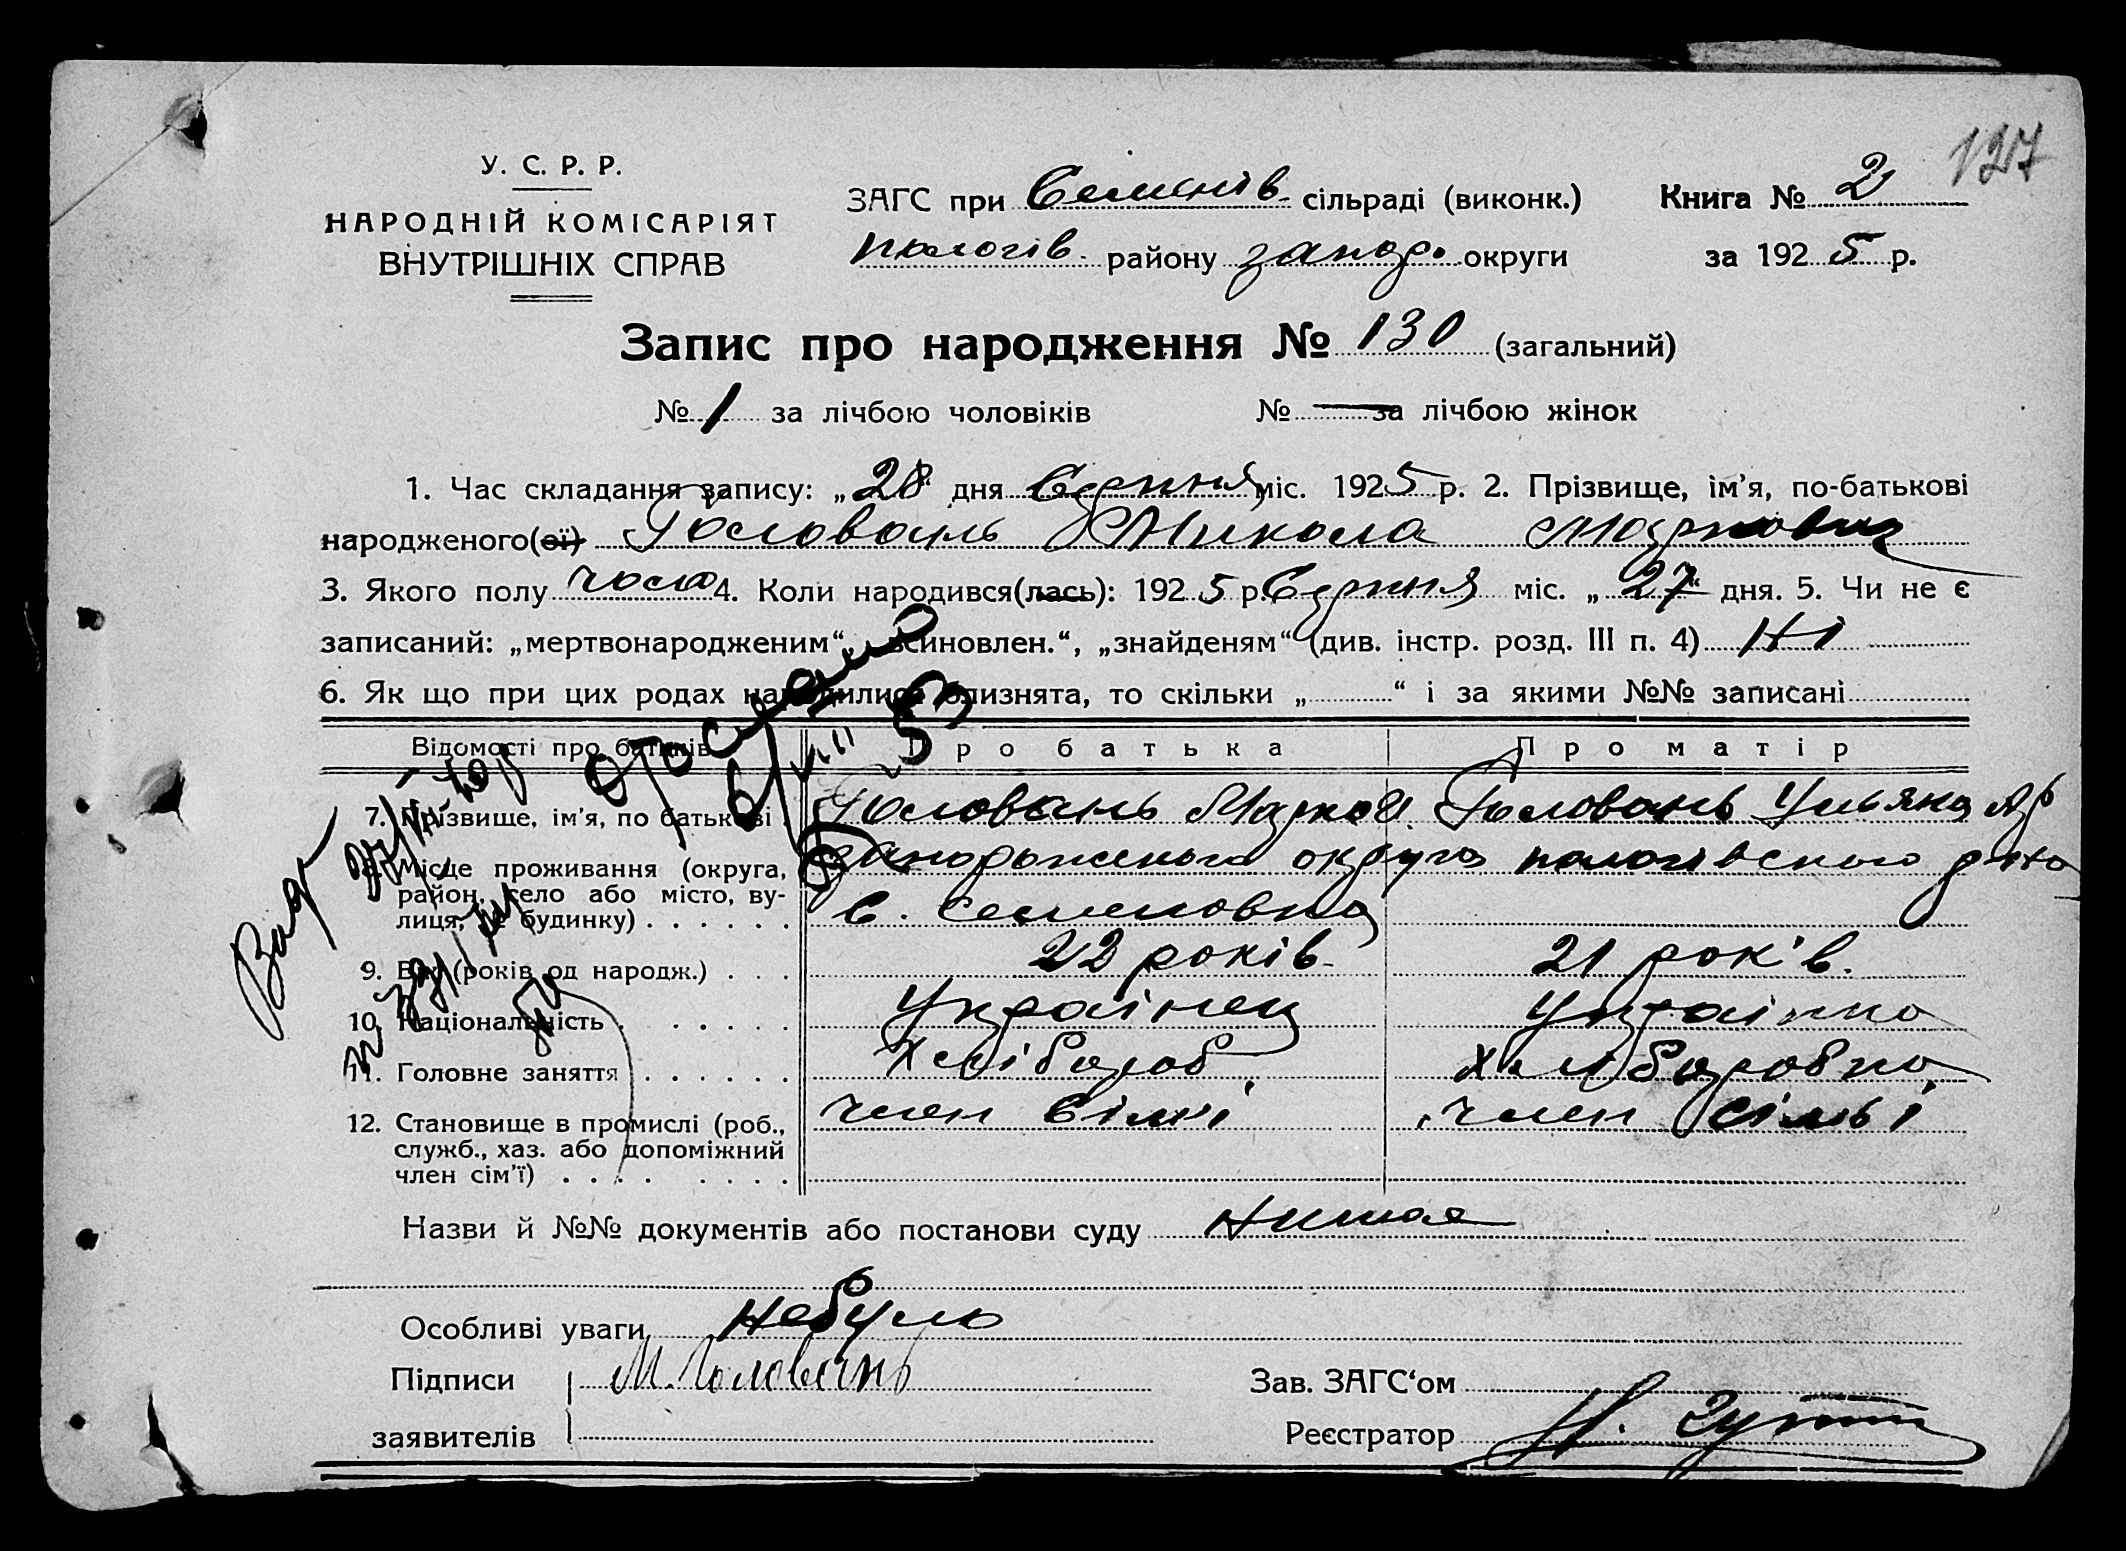 127
У. С. Р. Р.
НАРОДНІЙ КОМІСАРІЯТ
ВНУТРІШНІХ СПРАВ
ЗАГС при Семенів. сільраді (виконк.) Книга № 2
Пологів. району запор. округи за 1925 р.
Запис про народження № 130 (загальний)
№ 1 за лічбою чоловіків № — за лічбою жінок
1. Час складання запису: „28“ дня Серпня міс. 1925 р. 2. Прізвище, ім'я, по-батькові
народженого(ої) Головань Микола Маркович
3. Якого полу чолов 4. Коли народився(лась): 1925 р. Серпня міс. „27“ дня. 5. Чи не є
записаний: „мертвонародженим“, „всиновлен.“, „знайденям“ (див. інстр. розд. III п. 4) Ні
6. Як що при цих родах народилися близнята, то скільки „ “ і за якими №№ записані
Відомості про батьків Про батька Про матір
7. Прізвище, ім'я, по батькові Головань Марко И. Головань Ульяна
8. Місце проживання (округа, Запорожського округа пологівського
район, село або місто, ву-
лиця, № будинку) с. Семеновка
9. Вік (років од народж.) 22 років. 21 рок'в.
10. Національність Українец Українка
11. Головне заняття Хлібороб Хлиборобка
12. Становище в промислі (роб., член сімї член сімьі
служб., хаз. або допоміжний
член сім'ї)
Назви й №№ документів або постанови суду
Особливі уваги небуло
Підписи М. Головань Зав. ЗАГС'ом
заявителів Реєстратор